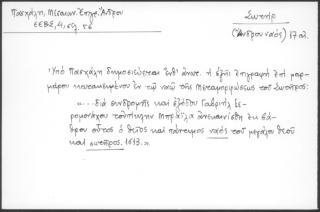 Πασχάλη, Μεσαιων. Ἐπιγρ. Ἄνδρου
ΕΕΒΣ, 4, σελ. 56
Σωτὴρ
(Ἄνδρου ναός) 17 αἰ.
Ὑπὸ Πασχάλη δημοσιεύεται ἐνθ' ἀνωτ. ἡ ἑξῆς ἐπιγραφὴ ἐπὶ μαρ-
μάρου κατακειμένου ἐν τῷ ναῷ τῆς Μεταμορφώσεως τοῦ Σωτῆρος:
«...διὰ συνδρομῆς καὶ ἐξόδου Γαβριὴλ ἱε-
ρομονάχου ἀνεκαινίσθη ἐκ βά-
θρου οὗτος ὁ θεῖος καὶ πάντιμος ναὸς τοῦ μεγάλου Θεοῦ
καὶ σωτῆρος. 1613.»